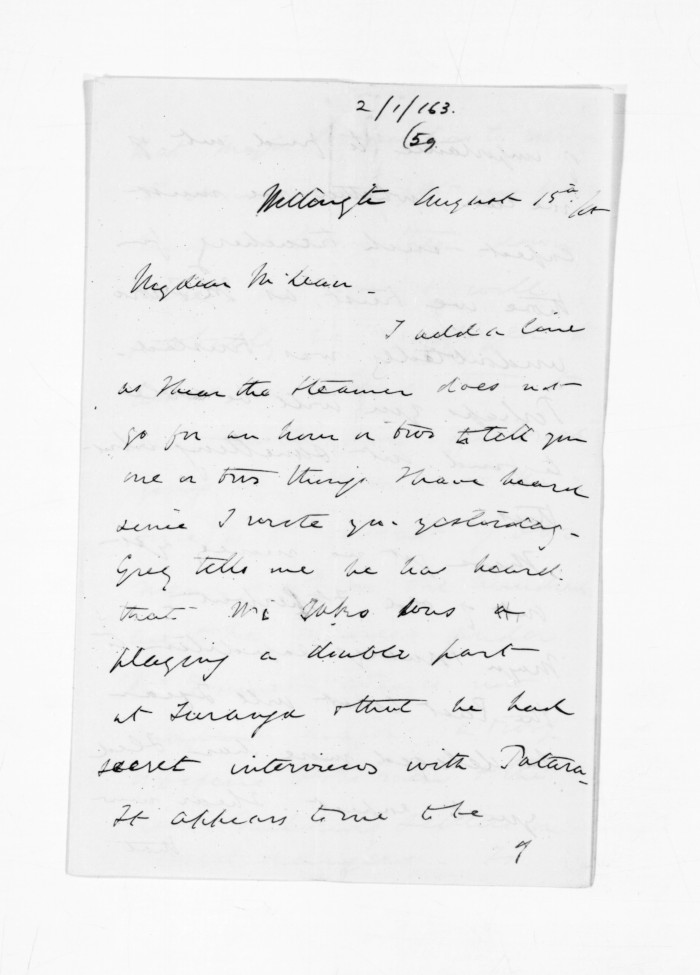 2/1/163.
(59.
Wellington August 15th
My dear McLean -
I add a line
as I hear the steamer does not
go for an hour or two to tell you
one or two things I have heard
since I wrote you yesterday -
Grey tells me he has heard
that Wi Tako was
playing a double part
at Taranga & that he had
secret interviews with Tatara -
It appears to me to be